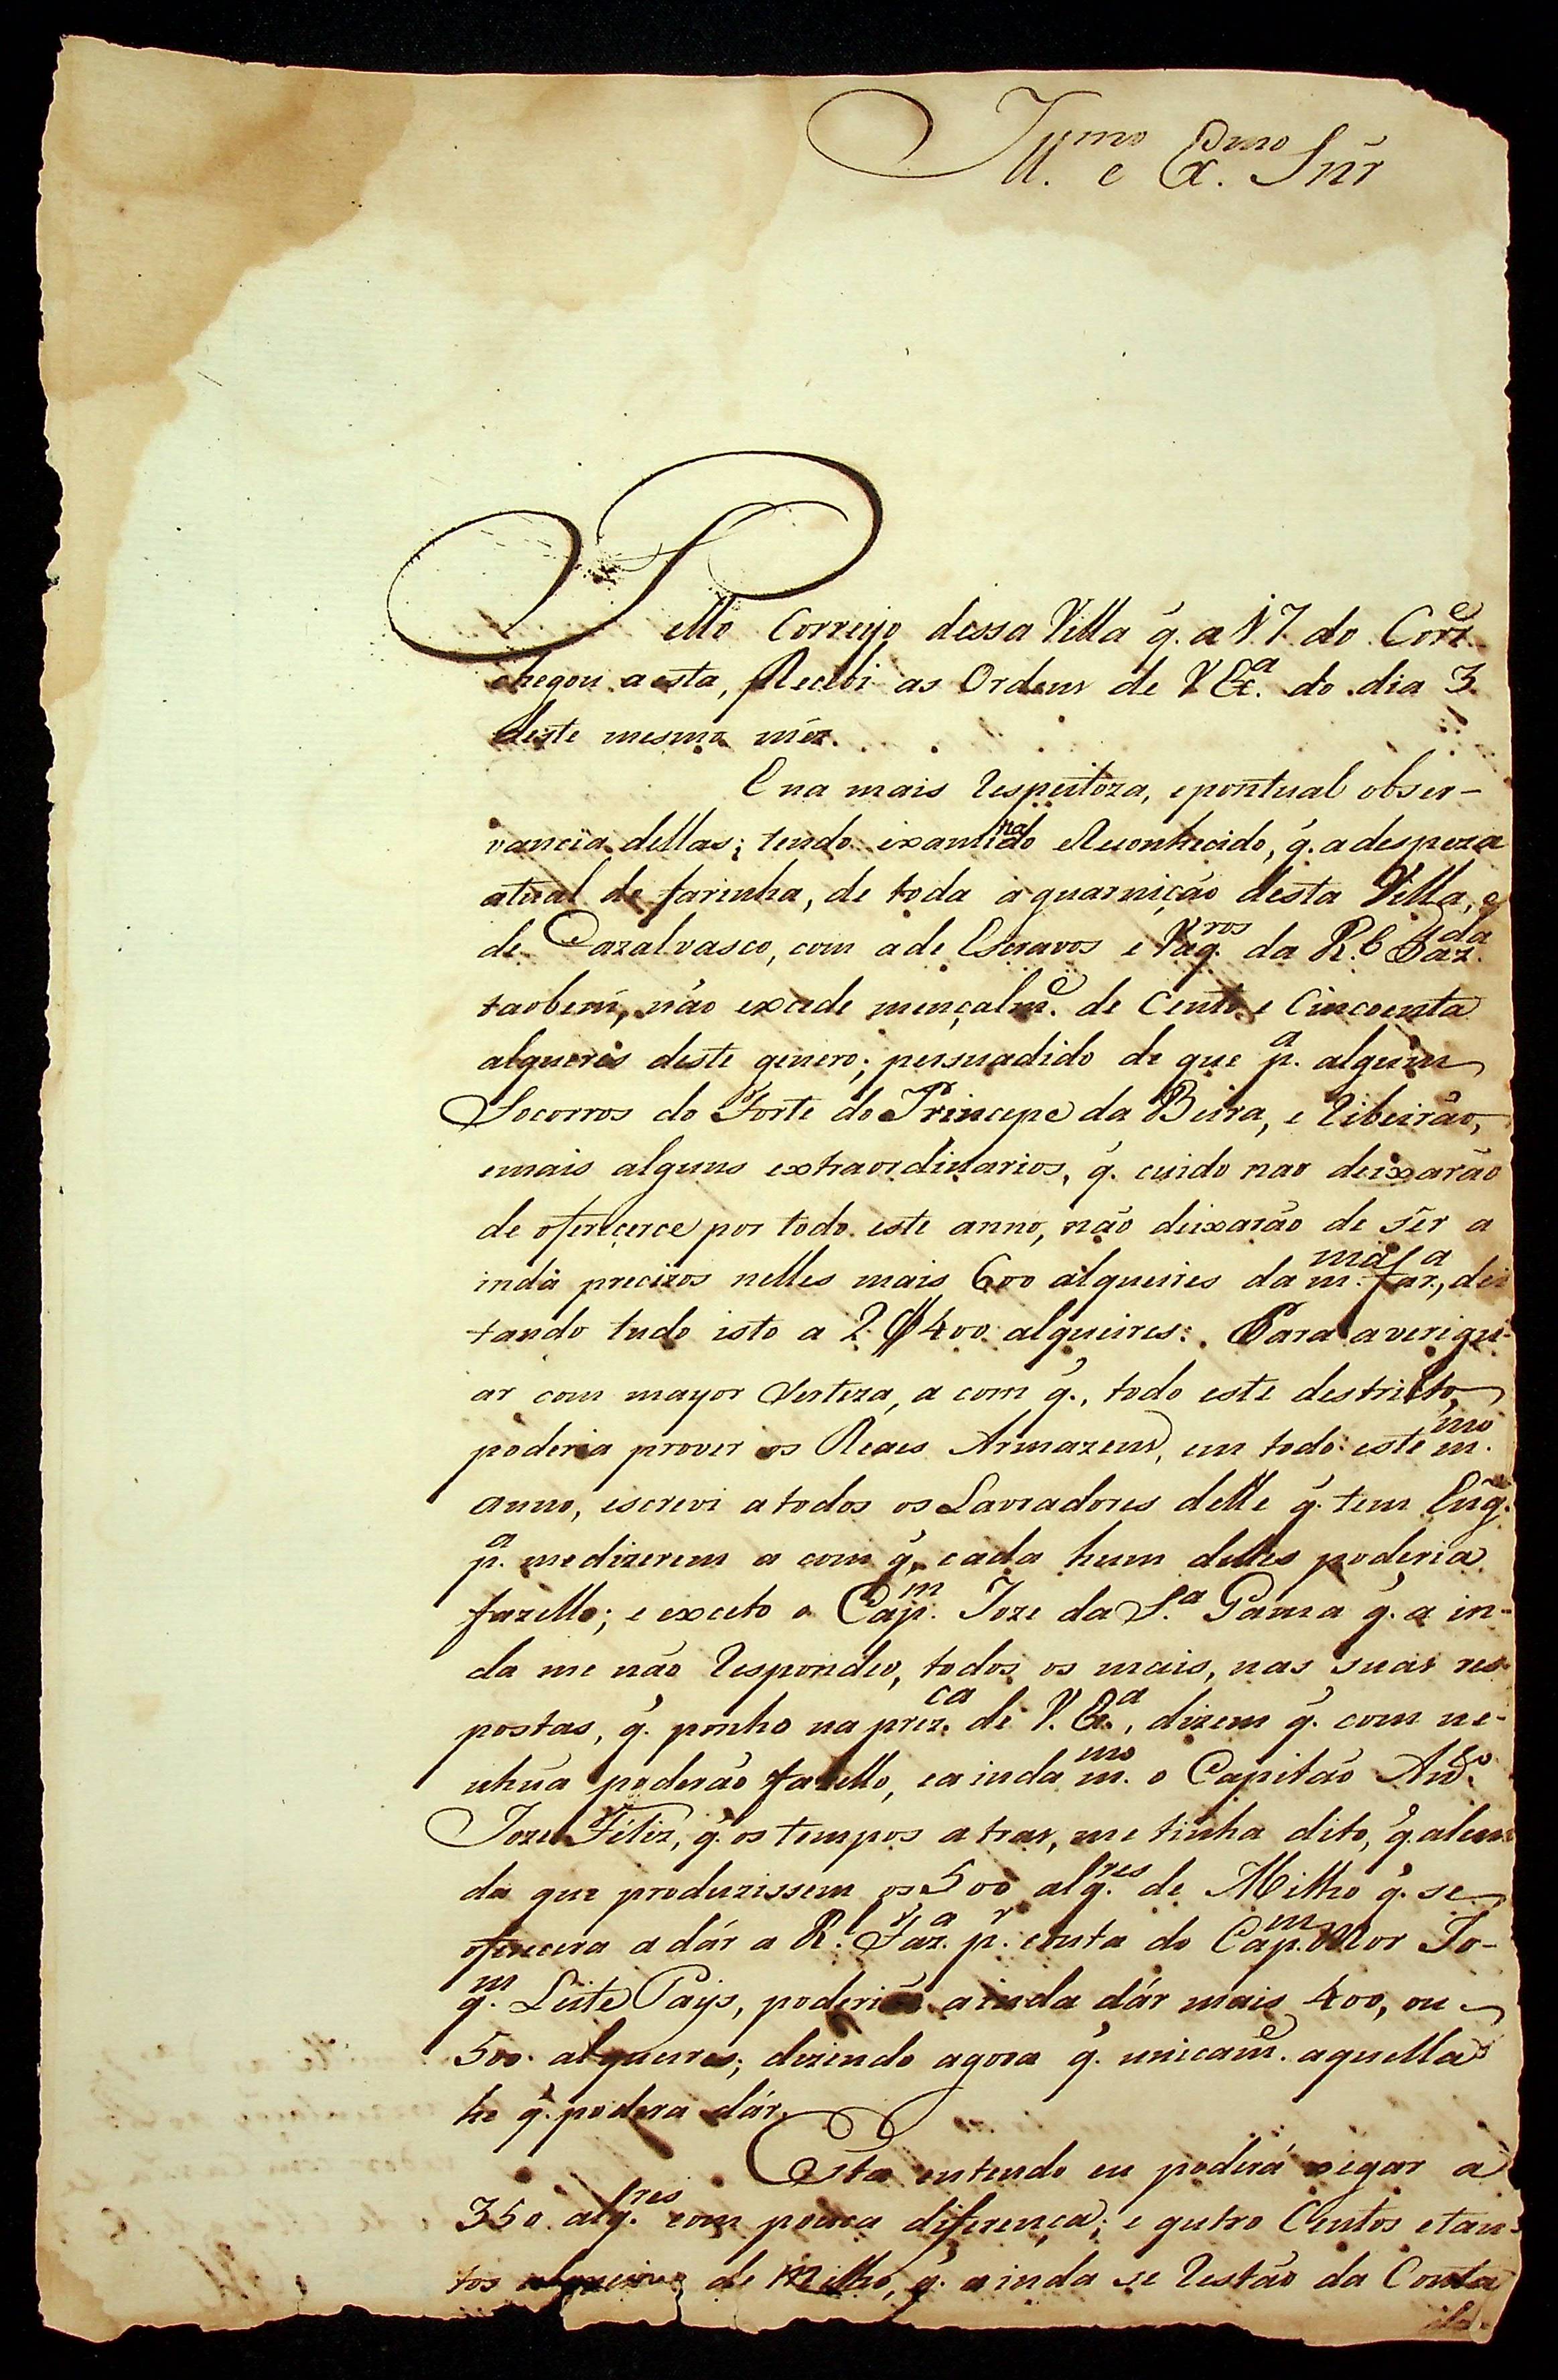 Ill.mo e Ex.mo Snr̃
Pello Correyo dessa Villa q̃. a 17. do Corr.e
chegou aesta, Recebi as Ordens de V Ex.a do dia 3
deste mesmo mês.
E na mais respeitoza, epontual obser-
vancia dellas; tendo examinado eReconhecido, q̃. adespeza
atual de farinha, de toda aguarnição desta Villa, e
de Cazalvasco, com ade Escravos e Vaq.ros da R.l Faz.da
taobem, não excede mençalm.e de Cento e Cincoenta
alqueres deste genero; persuadido de que p.a alguns
Socorros do Forte do Princepe da Beira, e ribeirão,
emais alguns extraordinarios, q̃. cuido nao deixarão
de ofereçerce por todo este anno, não deixarão de ser a
inda precizos nelles mais 600 alqueires da m.ma far.a, dei
tando tudo isto a 2$400 alqueires: Para averigu-
ar com mayor Serteza, a com q̃., todo este destricto
poderia prover os Reaes Armazens, em todo este m.mo
anno, escrevi atodos os Lavradores delle q̃. tem Eng.
p.a medizerem a com q̃. cada hum delles poderia
fazello; e exceto o Cap.m Joze da S.a Gama q̃. a in-
da me não respondeo, todos os mais, nas suas res-
postas, q̃. ponho na prez.ca de V. Ex.a, dizem q̃. com ne-
nhũa poderão fazello, eainda m.mo o Capitão
Joze Feliz, q̃. os tempos atraz, me tinha dito, q̃. alem
da que produzissem os 500 alq.res de Milho q̃. se
oferecera a dár a R.l Faz.a p.r conta do Cap.m Mor Jo-
q.m Leite Pays, poderia ainda dár mais 400, ou
500 alqueires; dizendo agora q̃. unicam.e aquella
he q̃. podera dár.
Esta entendo eu poderá xegar a
350 alq.res com pouca diferença; e qutro Centos etan-
tos alqueires de Milho, q̃. ainda se restão da Conta